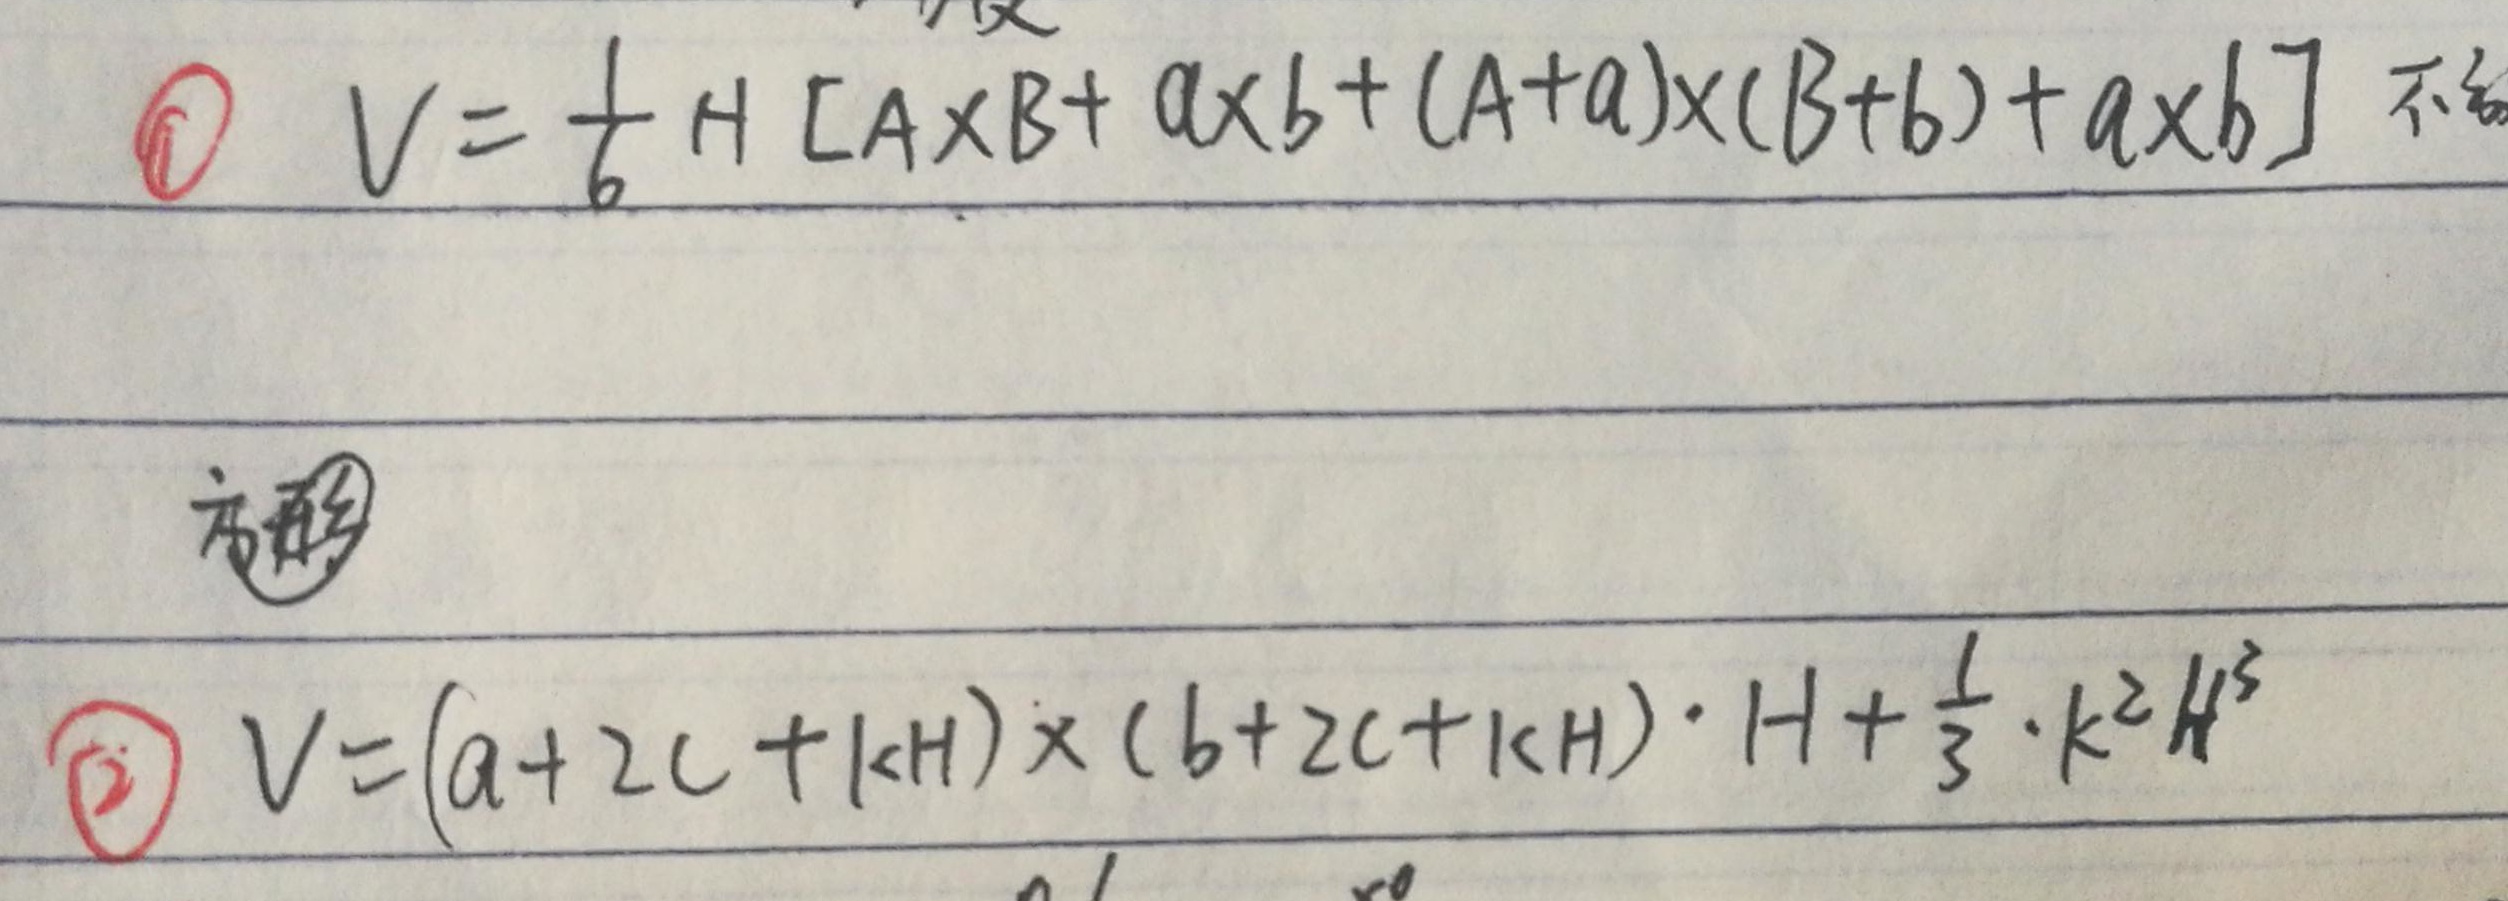 ① V = 1/6 H [A×B + a×b + (A+a)×(B+b) + a×b] 不
方形
② V = (a+2c+kH)×(b+2c+kH)·H + 1/3·k²H³